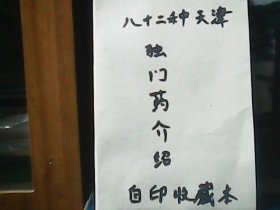 八十二种天津
独门药介绍
自印收藏本